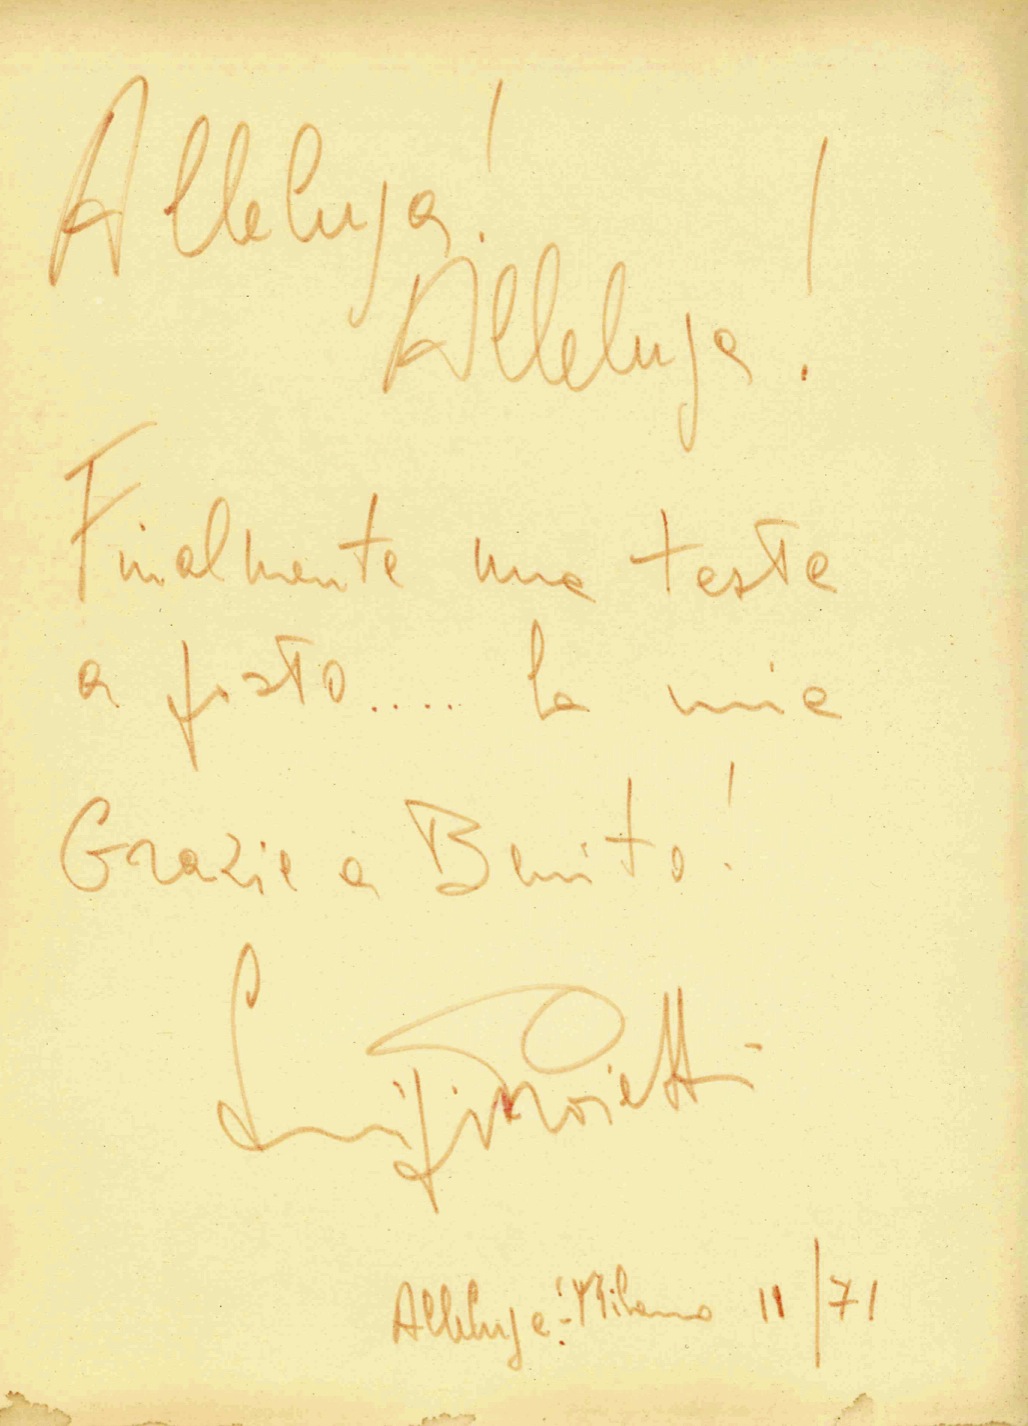 Alleluja!
Alleluja!
Finalmente una testa
a posto.... la mia
Grazie a Benito!
Luigi Proietti
Alleluja! Milano 11/71